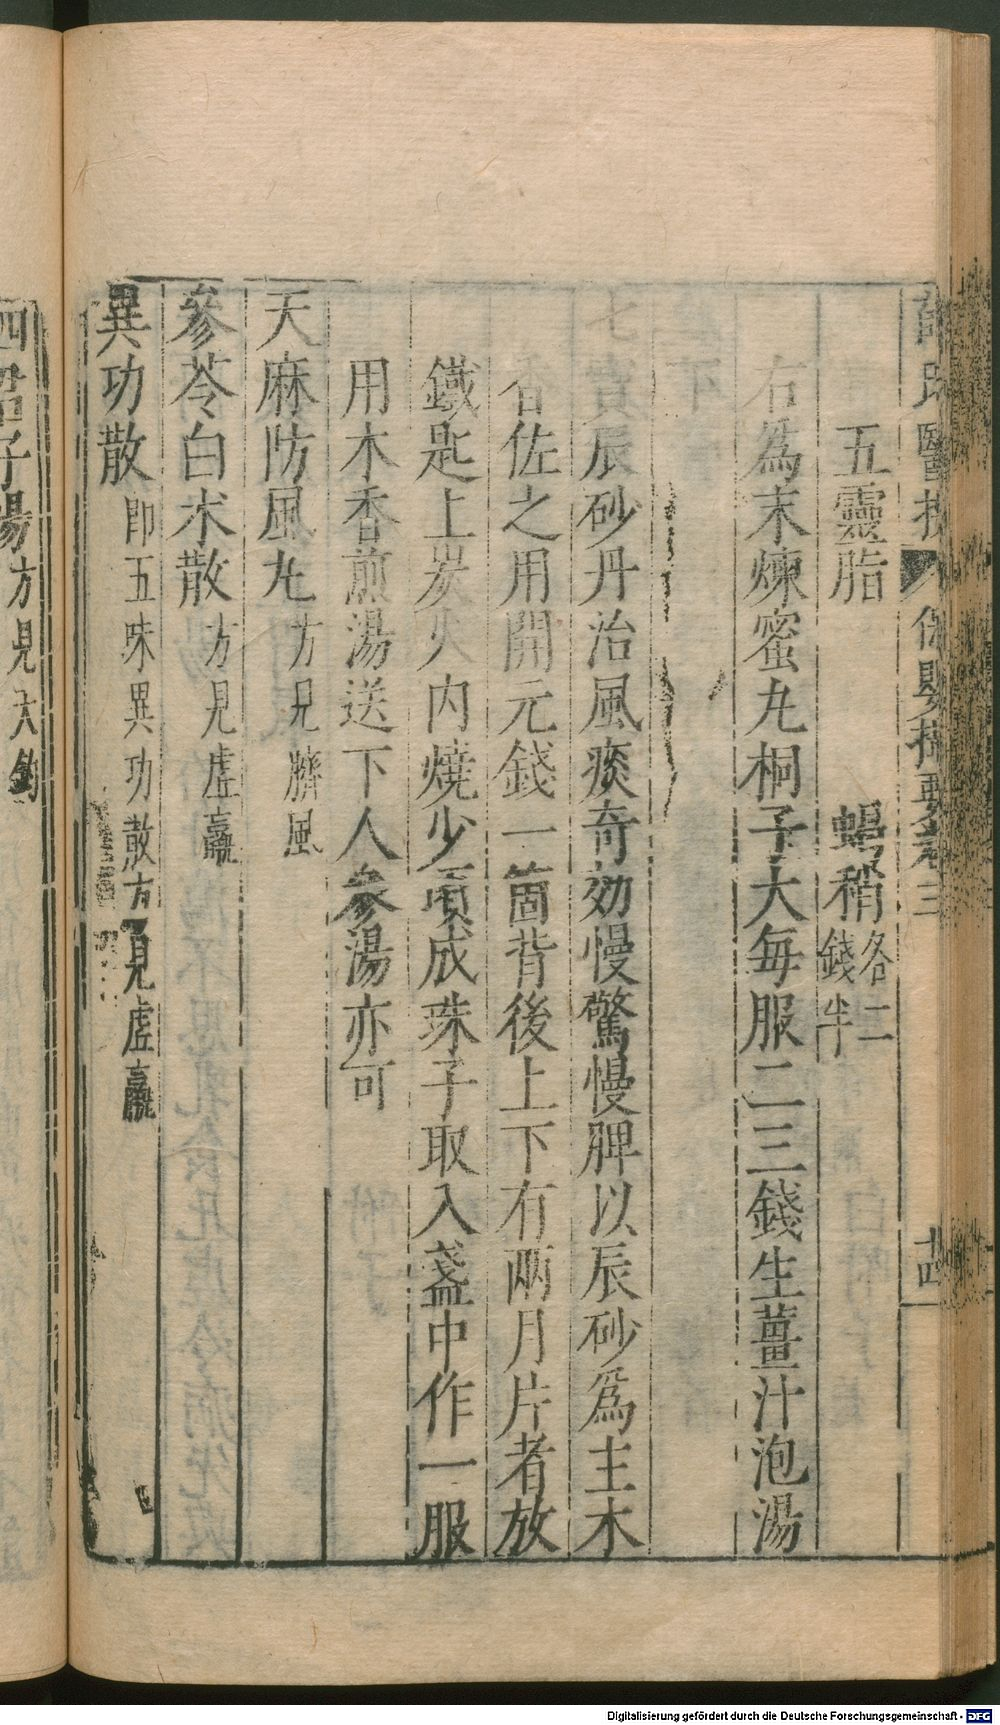 氏醫 保嬰撮要卷三 十四
五靈脂 蝎稍各二錢半
右為末煉蜜丸桐子大每服二三錢生薑汁泡湯
七寶辰砂丹治風痰奇効慢驚慢脾以辰砂爲主木
香佐之用開元錢一箇背後上下有兩月片者放
鐵匙上炭火内燒少頃成珠子取入盞中作一服
用木香煎湯送下人參湯亦可
天麻防風丸方見臍風
參苓白朮散方見虛羸
異功散即五味異功散方見虛羸
四君子湯方見天釣
Digitalisierung gefördert durch die Deutsche Forschungsgemeinschaft - DFG